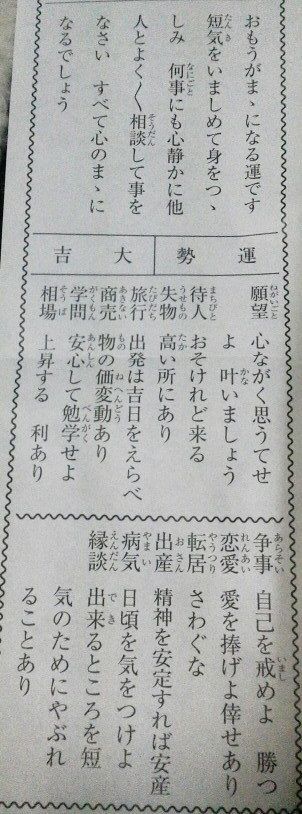 おもうがまゝになる運です
短気をいましめて身をつゝ
しみ 何事にも心静かに他
人とよく〱相談して事を
なさい すべて心のまゝに
なるでしょう
運勢 大吉
願望 心ながく思うてせ
よ 叶いましょう
待人 おそけれど来る
失物 高い所にあり
旅行 出発は吉日をえらべ
商売 物の価変動あり
学問 安心して勉学せよ
相場 上昇する 利あり
争事 自己を戒めよ 勝つ
恋愛 愛を捧げよ倖せあり
転居 さわぐな
出産 精神を安定すれば安産
病気 日頃を気をつけよ
縁談 出来るところを短
気のためにやぶれ
ることあり